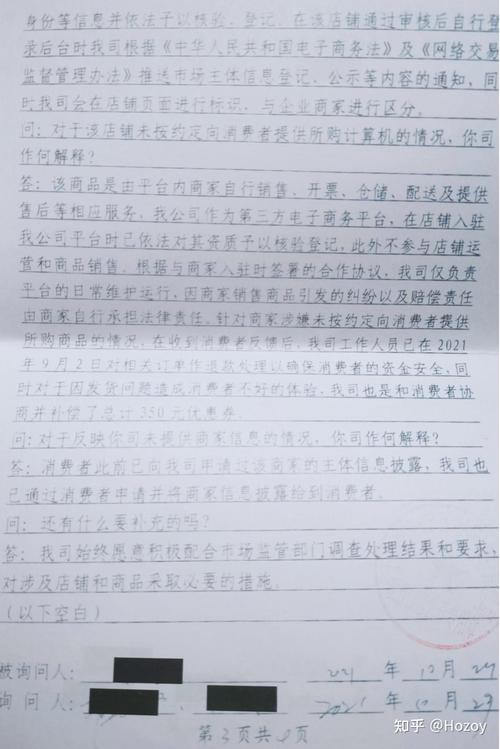 身份等信息并依法予以核验、登记。在该店铺通过审核后自行登
录后台时我司根据《中华人民共和国电子商务法》及《网络交易
监督管理办法》推送市场主体信息登记、公示等内容的通知，同
时我司会在店铺页面进行标识，与企业商家进行区分。
问：对于该店铺未按约定向消费者提供所购计算机的情况，你司
作何解释？
答：该商品是由平台内商家自行销售、开票、仓储、配送及提供
售后等相应服务，我公司作为第三方电子商务平台，在店铺入驻
我公司平台时已依法对其资质予以核验登记，此外不参与店铺运
营和商品销售。根据与商家入驻时签署的合作协议，我司仅负责
平台的日常维护运行，因商家销售商品引发的纠纷以及赔偿责任
由商家自行承担法律责任。针对商家涉嫌未按约定向消费者提供
所购商品的情况，在收到消费者反馈后，我司工作人员已在2021
年9月2日对相关订单作退款处理以确保消费者的资金安全，同
时对于因发货问题造成消费者不好的体验，我司也是和消费者协
商并补偿了总计350元优惠券。
问：对于反映你司未提供商家信息的情况，你司作何解释？
答：消费者此前已向我司申请过该商家的主体信息披露，我司也
已通过消费者申请并将商家信息披露给到消费者。
问：还有什么要补充的吗？
答：我司始终愿意积极配合市场监管部门调查处理结果和要求，
对涉及店铺和商品采取必要的措施。
（以下空白）
被询问人： 2021 年 10 月 29
询问人： 、 2021 年 10 月 29
第3页共 页
知乎 @Hozoy